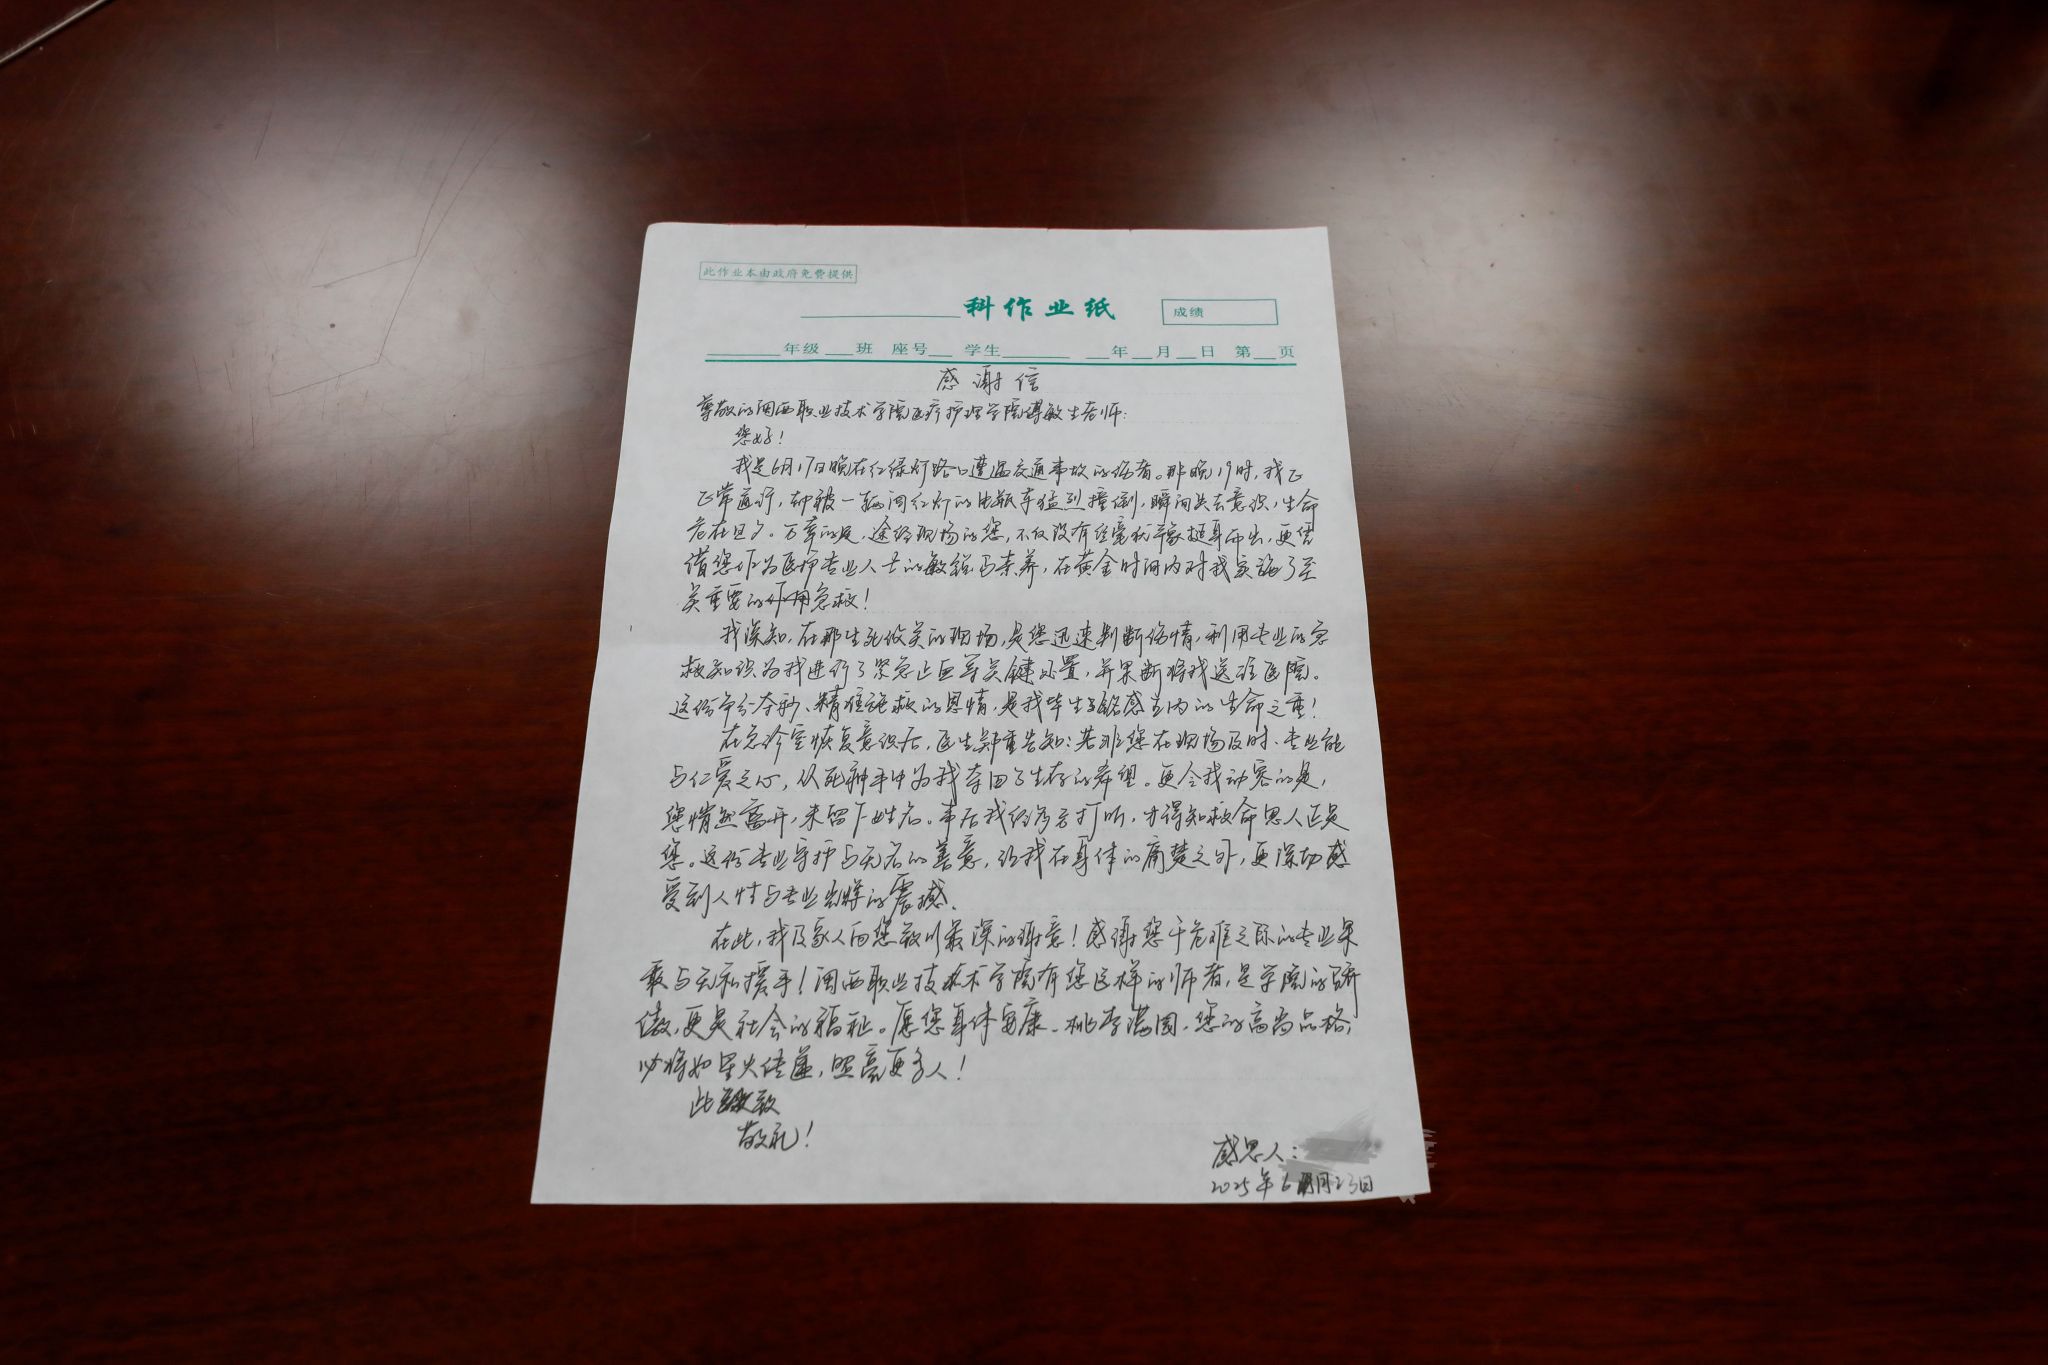 此作业本由政府免费提供
科作业纸 成绩
年级 班 座号 学生 年 月 日 第 页
感谢信
尊敬的闽西职业技术学院医疗护理学院傅敏生老师:
您好!
我是6月17日晚在红绿灯路口遭遇交通事故的伤者。那晚19时,我正
正常通行,却被一辆闯红灯的电瓶车猛烈撞倒,瞬间失去意识,生命
危在旦夕。万幸的是,途经现场的您,不仅没有丝毫犹豫挺身而出,更凭
借您作为医护专业人士的敏锐与素养,在黄金时间内对我实施了至
关重要的急救!
我深知,在那生死攸关的现场,是您迅速判断伤情,利用专业的急
救知识为我进行了紧急止血等关键处置,并果断将我送往医院。
这份争分夺秒、精准施救的恩情,是我毕生铭感五内的生命之重!
在急诊室恢复意识后,医生郑重告知:若非您在现场及时、专业能
与仁爱之心,从死神手中为我夺回了生存的希望。更令我动容的是,
您悄然离开,未留下姓名。事后我经多方打听,才得知救命恩人正是
您。这份专业守护与无名的善意,给我在身体的痛楚之外,更深切感
受到人性与专业光辉的震撼。
在此,我及家人向您致以最深的谢意!感谢您于危难之际的专业果
敢与无私援手!闽西职业技术学院有您这样的师者,是学院的骄
傲,更是社会的福祉。愿您身体安康、桃李满园,您的高尚品格,
必将如星火传递,照亮更多人!
此致
敬礼!
感恩人:
2025年6月23日